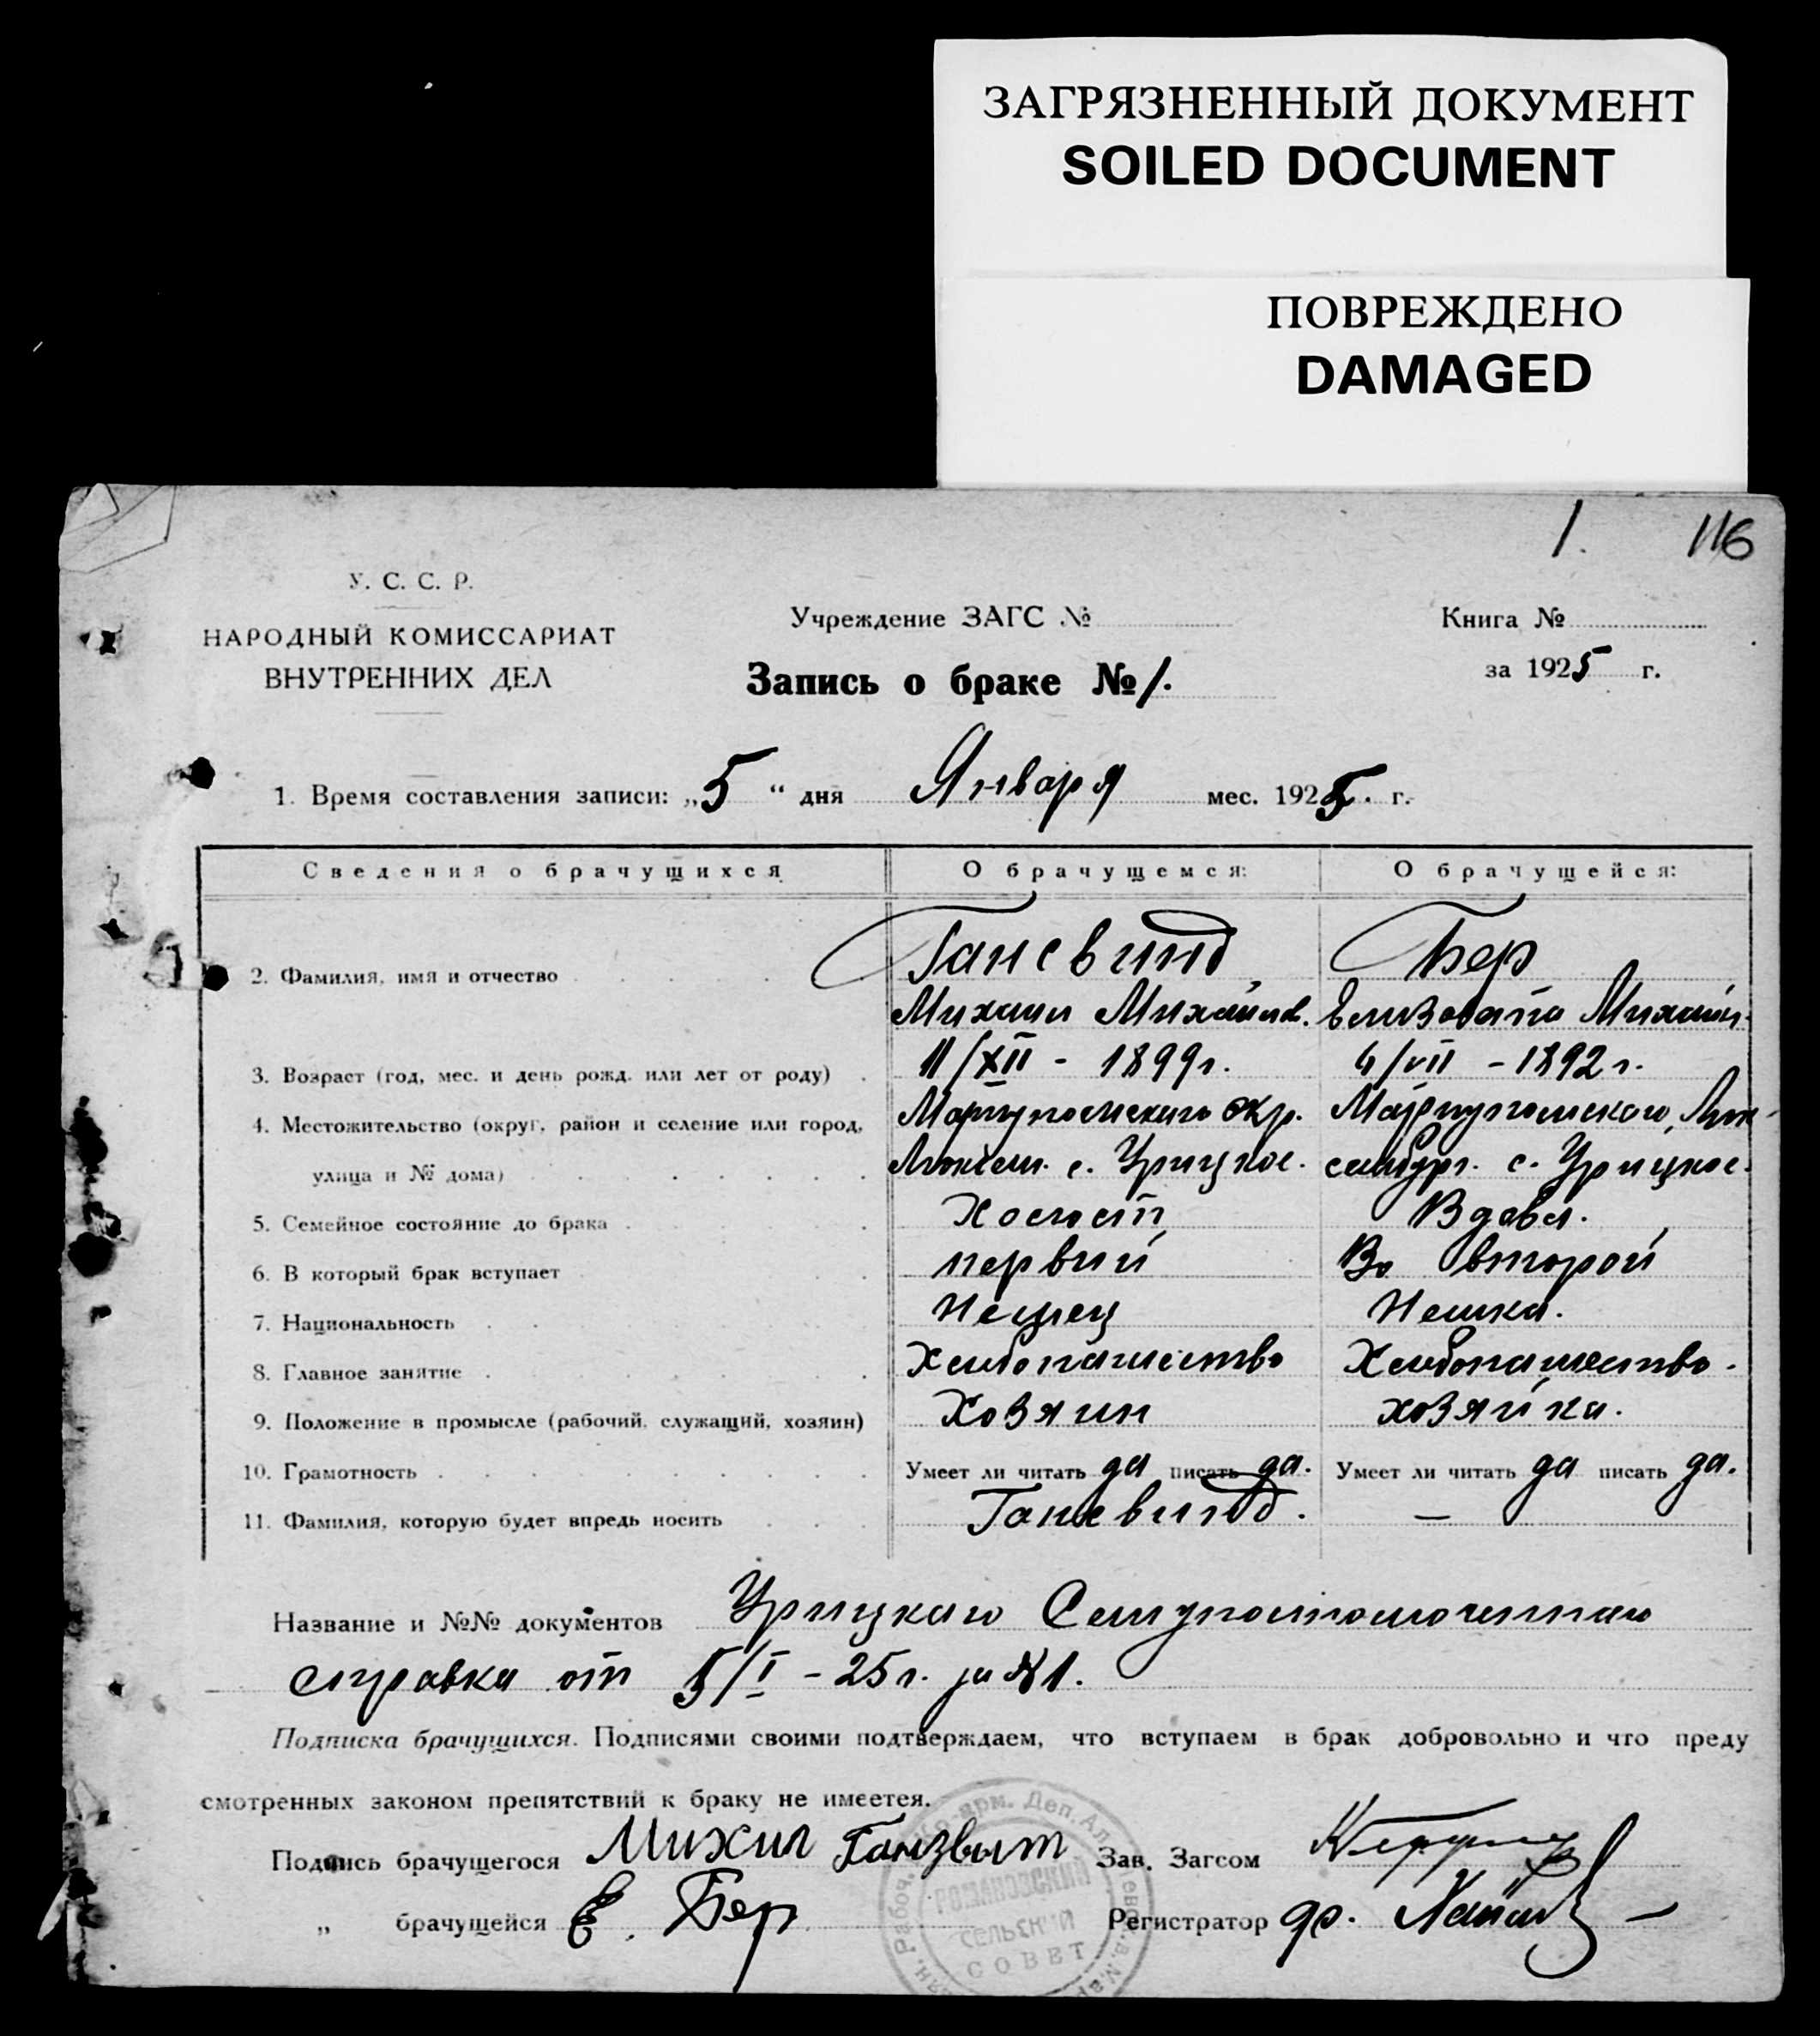 ЗАГРЯЗНЕННЫЙ ДОКУМЕНТ
SOILED DOCUMENT
ПОВРЕЖДЕНО
DAMAGED
1. 116
У. С. С. Р.
НАРОДНЫЙ КОМИССАРИАТ
ВНУТРЕННИХ ДЕЛ
Учреждение ЗАГС №
Книга №
за 1925 г.
Запись о браке № 1.
1. Время составления записи: „5“ дня Января мес. 1925. г.
Сведения о брачущихся О брачущемся: О брачущейся:
2. Фамилия, имя и отчество Гансвинд Бер
Михаил Михайлов. Елизовата Михайл.
3. Возраст (год, мес. и день рожд. или лет от роду) 11/XII - 1899 г. 4/VII - 1892 г.
4. Местожительство (округ, район и селение или город, Мариупольского окр. Мариупольского, Люк-
улица и № дома) Люксем. с. Урицкое. сембург. с. Урицкое.
5. Семейное состояние до брака Холост Вдова.
6. В который брак вступает первый Во второй
7. Национальность Немец Немка.
8. Главное занятие Хлебопашество Хлебопашество.
9. Положение в промысле (рабочий, служащий, хозяин) Хозяин хозяйка.
10. Грамотность Умеет ли читать да писать да. Умеет ли читать да писать да.
11. Фамилия, которую будет впредь носить Гансвинд. —
Название и №№ документов Урицкого Сельуполномоченного
справка от 5/I - 25 г. за № 1.
Подписка брачущихся. Подписями своими подтверждаем, что вступаем в брак добровольно и что преду
смотренных законом препятствий к браку не имеется.
Подпись брачущегося Михил Ганзвит Зав. Загсом
„ брачущейся Е. Бер Регистратор
РОМАНОВСКИЙ
СЕЛЬСКИЙ
СОВЕТ